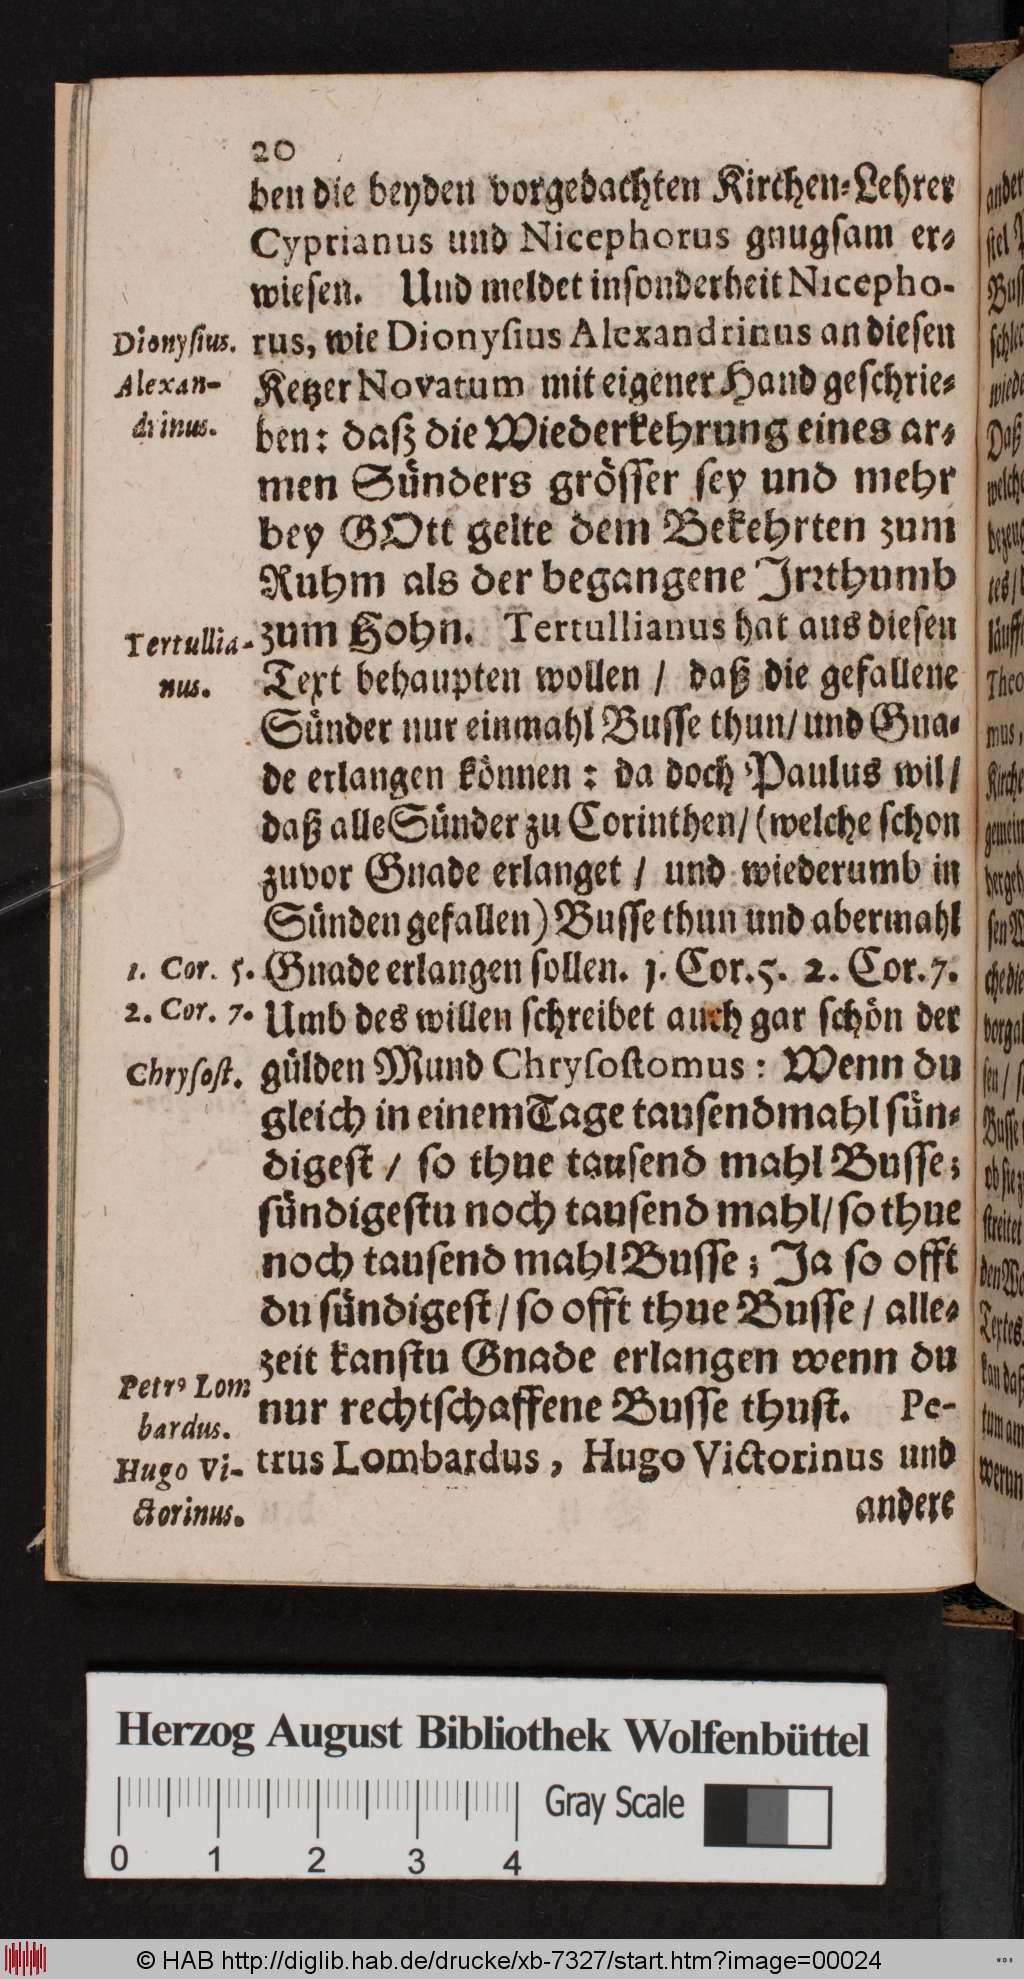 20
ben die beyden vorgedachten Kirchen-Lehrer
Cyprianus und Nicephorus gnugsam er-
wiesen. Und meldet insonderheit Nicepho-
rus, wie Dionysius Alexandrinus an diesen
Ketzer Novatum mit eigener Hand geschrie-
ben: daß die Wiederkehrung eines ar-
men Sünders grösser sey und mehr
bey GOtt gelte dem Bekehrten zum
Ruhm als der begangene Irrthumb
zum Hohn. Tertullianus hat aus diesen
Text behaupten wollen / daß die gefallene
Sünder nur einmahl Busse thun/ und Gna-
de erlangen können : da doch Paulus wil/
daß alle Sünder zu Corinthen/ (welche schon
zuvor Gnade erlanget / und wiederumb in
Sünden gefallen) Busse thun und abermahl
Gnade erlangen sollen. 1. Cor. 5. 2. Cor. 7.
Umb des willen schreibet auch gar schön der
gülden Mund Chrysostomus : Wenn du
gleich in einem Tage tausendmahl sün-
digest / so thue tausend mahl Busse;
sündigestu noch tausend mahl/ so thue
noch tausend mahl Busse ; Ja so offt
du sündigest / so offt thue Busse / alle-
zeit kanstu Gnade erlangen wenn du
nur rechtschaffene Busse thust. Pe-
trus Lombardus, Hugo Victorinus und
andere
Dionysius.
Alexan-
drinus.
Tertullia-
nus.
1. Cor. 5.
2. Cor. 7.
Chrysost.
Petrꝰ Lom
bardus.
Hugo Vi-
ctorinus.
Herzog August Bibliothek Wolfenbüttel
0 1 2 3 4
Gray Scale
© HAB http://diglib.hab.de/drucke/xb-7327/start.htm?image=00024